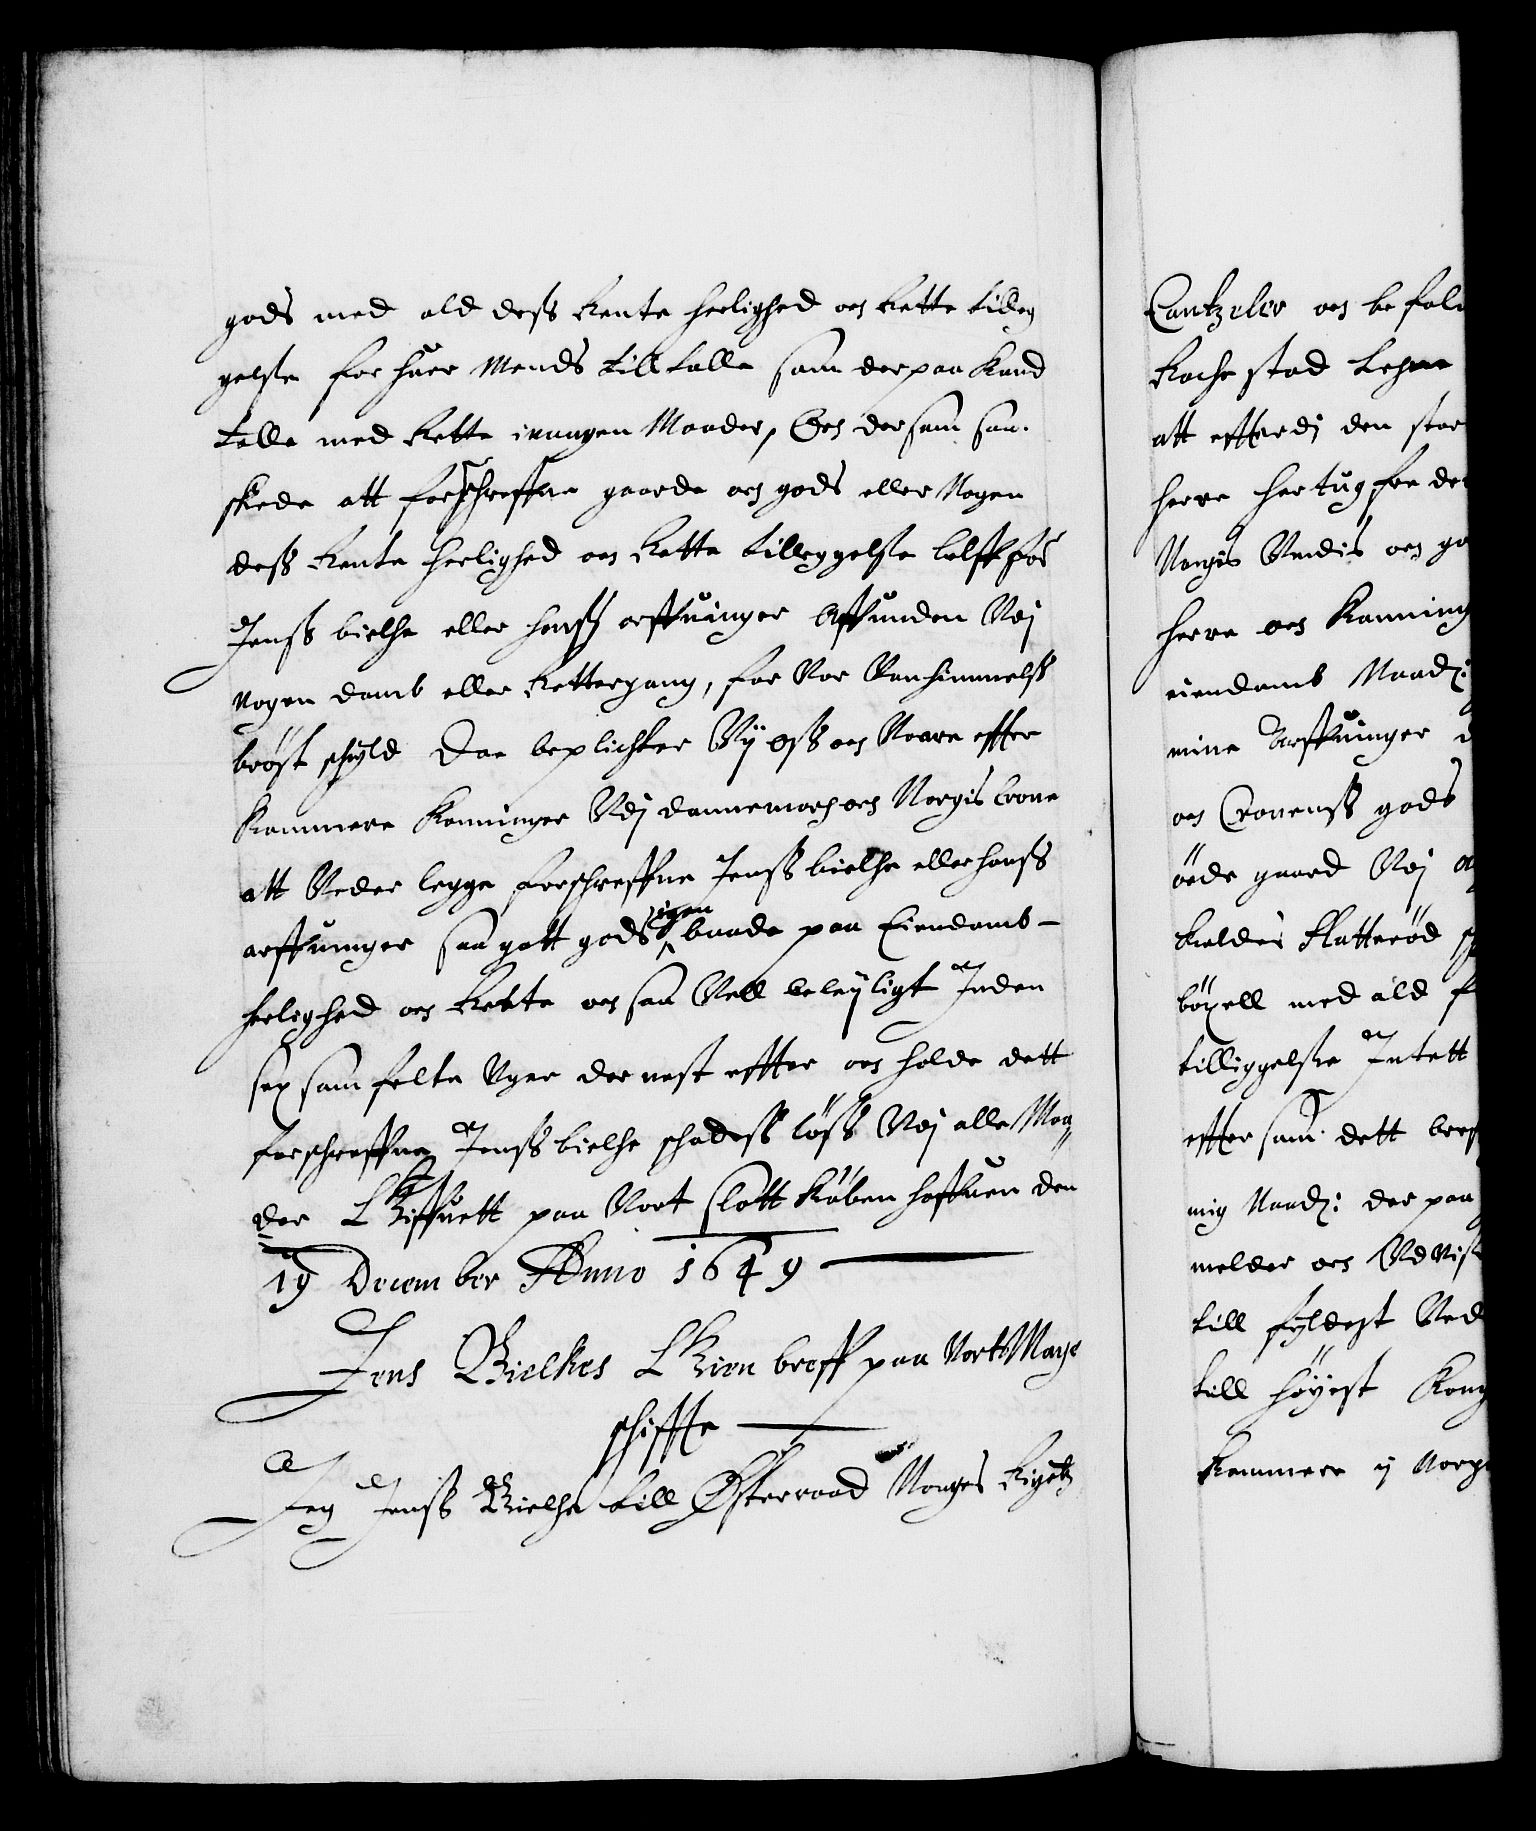 gods med ald dess Rente herlighed och Rette tilleg
gelse for huer Mands till talle som der paa kand
talle med Rette i nogen Maader, Och der som saa
skede att forschreffne gaarde och gods eller Nogen
dess Rente herlighed och Rette tilleggelse bleff for
Jenss bielke eller hanss arffuinger Affvunden Vdj
nogen domb eller Rettergang, for Vor Vanhimmelss
bröst schyld Daa beplichter Vij oss och Vaare effter
kommere konninger Vdj dannemarch och Norgis Crone
att Veder legge forschreffne Jenss bielke eller hanss
arffuinger saa gott gods igen baade paa Eiendomb
herlighed och Rente och saa Vell beleyligt Inden
sex samfelte Vger der nest effter och holde dett
forschreffne Jenss bielke schadess löss Vdj alle Maa
der Giffuett paa Vort Slott Köbenhaffuen den
19 December Anno 1649
Jens Bielkes Gien breff paa Vorts Mage
schiffte
Jeg Jenss Bielke till Østeraad Norges Rigetz
Cantzeler och befal
att efftterdj den stor
herre hertug fre der
Norgis Vendis och go
herre och Konning
eiendomb Naad:
mine Arffuinger d
och Cronenss gods
öede gaard Vdj
böxell med ald f
tilliggelse Intett
effter som dett bref
mig Naad: der paa
melder och Vdvis
till fyldest Ved
till höyest Kong
kommere i Norge